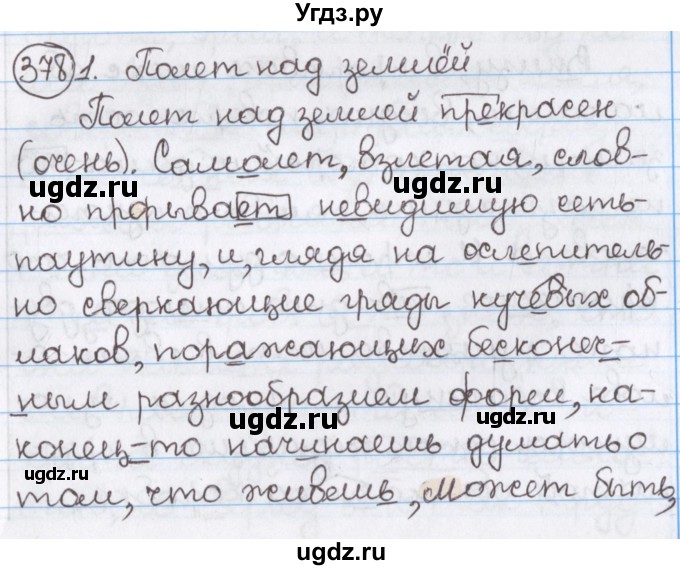 Угдз.ру
378 1. Полет над землёй
Полет над землей прекрасен
(очень). Самолет, взлетая, слов-
ugdz.ru ugdz.ru
но прорывает невидимую сеть-
паутину, и, глядя на ослепитель-
но сверкающие гряды кучевых об-
ugdz.ru
лаков, поражающих бесконеч-
ным разнообразием форм, на-
ugdz.ru ugdz.ru
конец-то начинаешь думать о
том, что живешь, может быть,
ugdz.ru